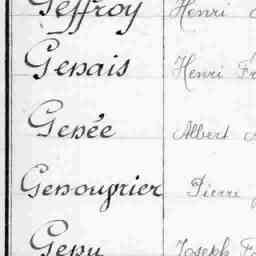 Geffroy Henri
Genais Henri
Genée Albert
Genougrier Pierre
Genu Joseph